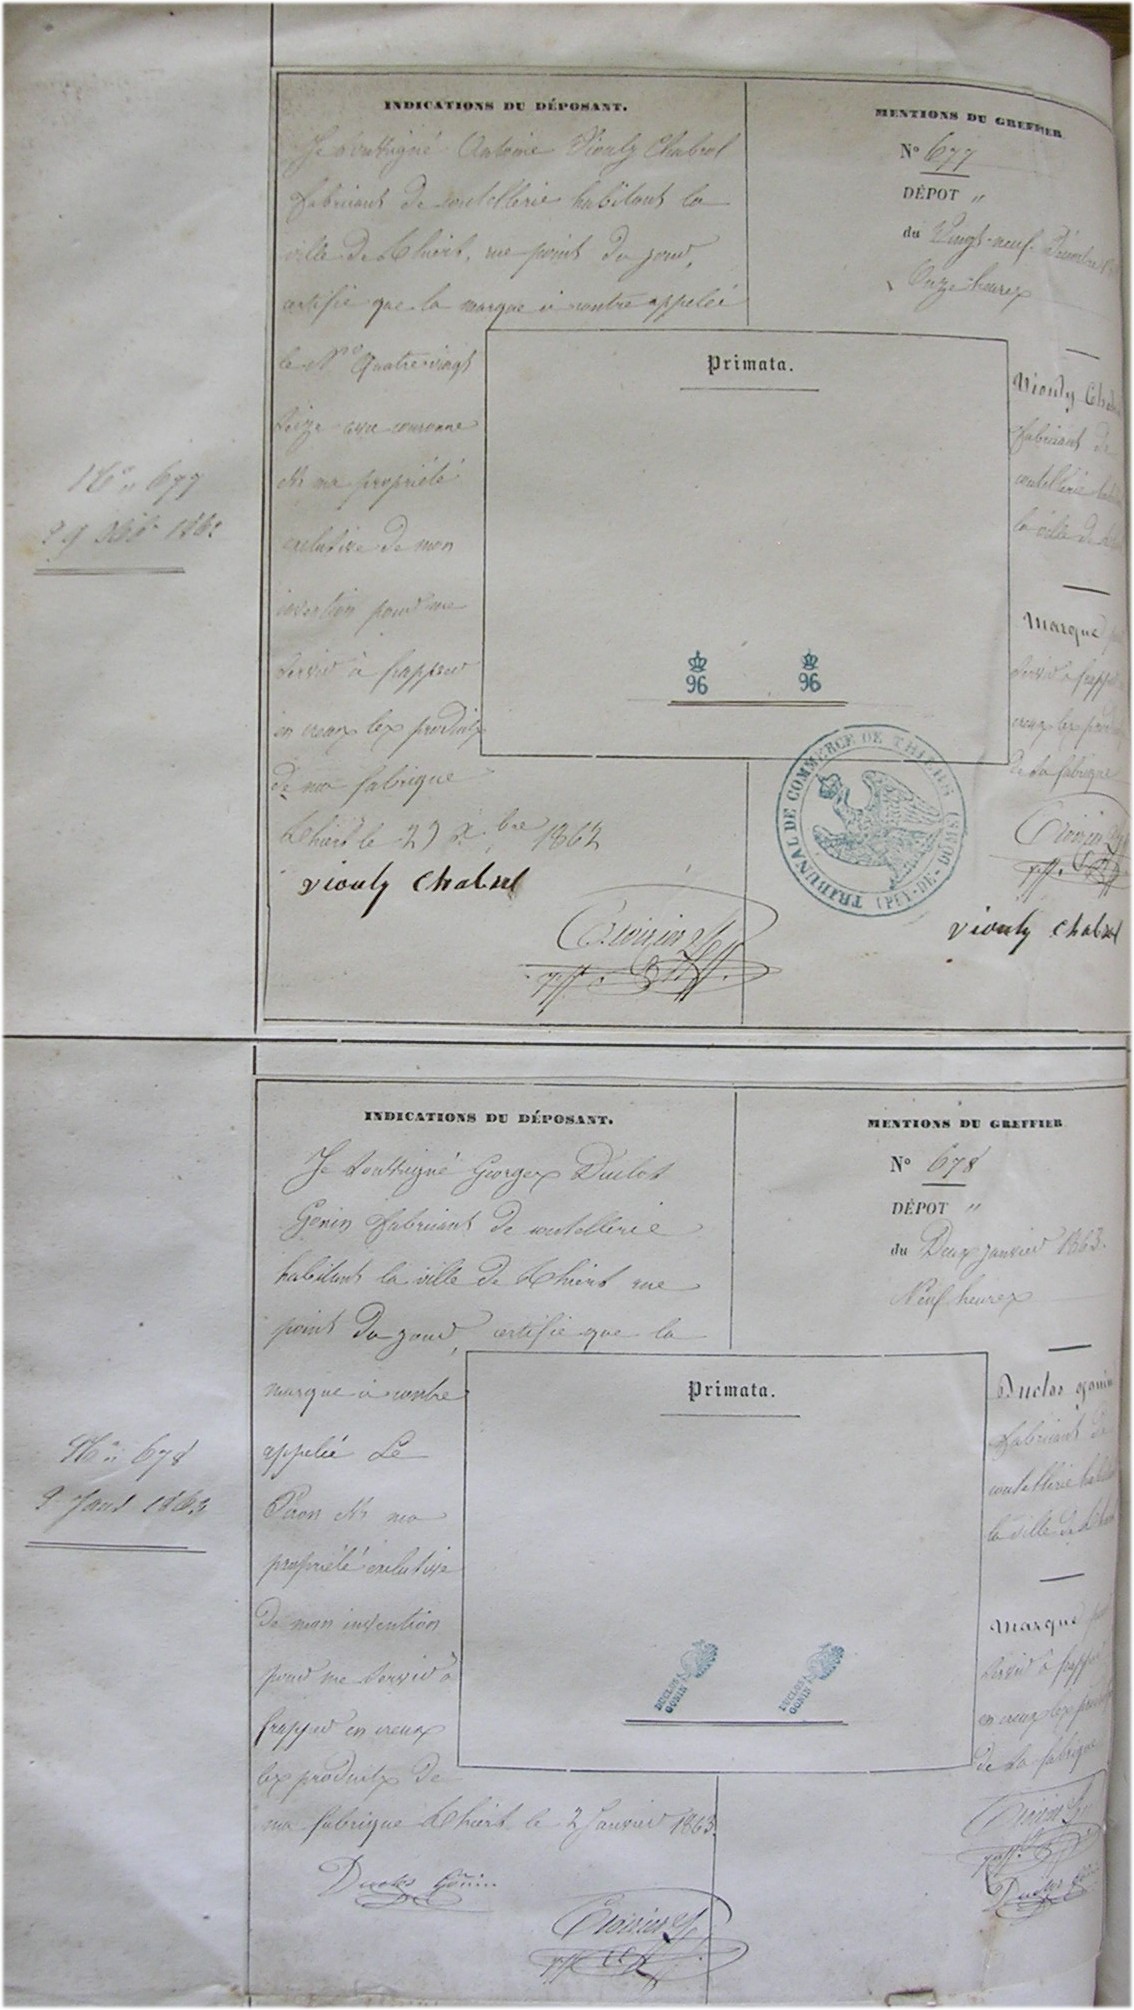 INDICATIONS DU DÉPOSANT.
Je soussigné Antoine Viouly Chabrol
fabricant de coutellerie habitant la
ville de Thiers, rue point du jour,
certifie que la marque ci contre appelée
le N° Quatre-vingt
seize avec couronne
est ma propriété
exclusive de mon
invention pour me
servir à frapper
en creux les produits
de ma fabrique
Thiers le 29 Xbre 1862
Viouly Chabrol
N° 677
29 Xbre 1862
MENTIONS DU GREFFIER
N° 677
DÉPOT "
du Vingt-neuf Décembre
Onze heures
Primata.
96 96
Viouly
fabricant de
coutellerie
la ville de
Marque
servir à frapper
creux les
de sa fabrique
TRIBUNAL DE COMMERCE DE THIERS (PUY-DE-DOME)
Viouly Chabrol
INDICATIONS DU DÉPOSANT.
Je soussigné Georges Duclos
Gonin fabricant de coutellerie
habitant la ville de Thiers rue
point du jour, certifie que la
marque ci contre
appelée Le
Paon est ma
propriété exclusive
de mon invention
pour me servir à
frapper en creux
les produits de
ma fabrique Thiers le 2 Janvier 1863.
Duclos Gonin
N° 678
2 Janv 1863
MENTIONS DU GREFFIER
N° 678
DÉPOT "
du Deux janvier 1863.
Neuf heures
Primata.
DUCLOS GONIN DUCLOS GONIN
Duclos gonin
fabricant de
coutellerie
la ville de
Marque
servir à frapper
en creux les
de sa fabrique
Duclos